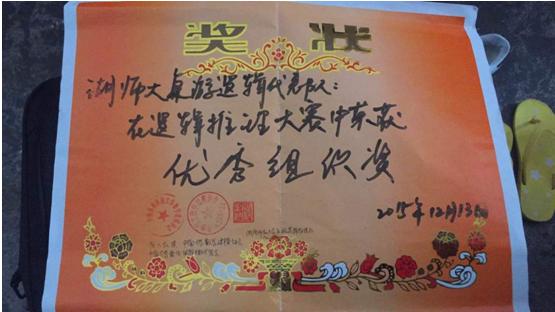 奖 状
湖师大桌游逻辑代表队：
在逻辑推理大赛中荣获
优秀组织奖
2015年12月13日